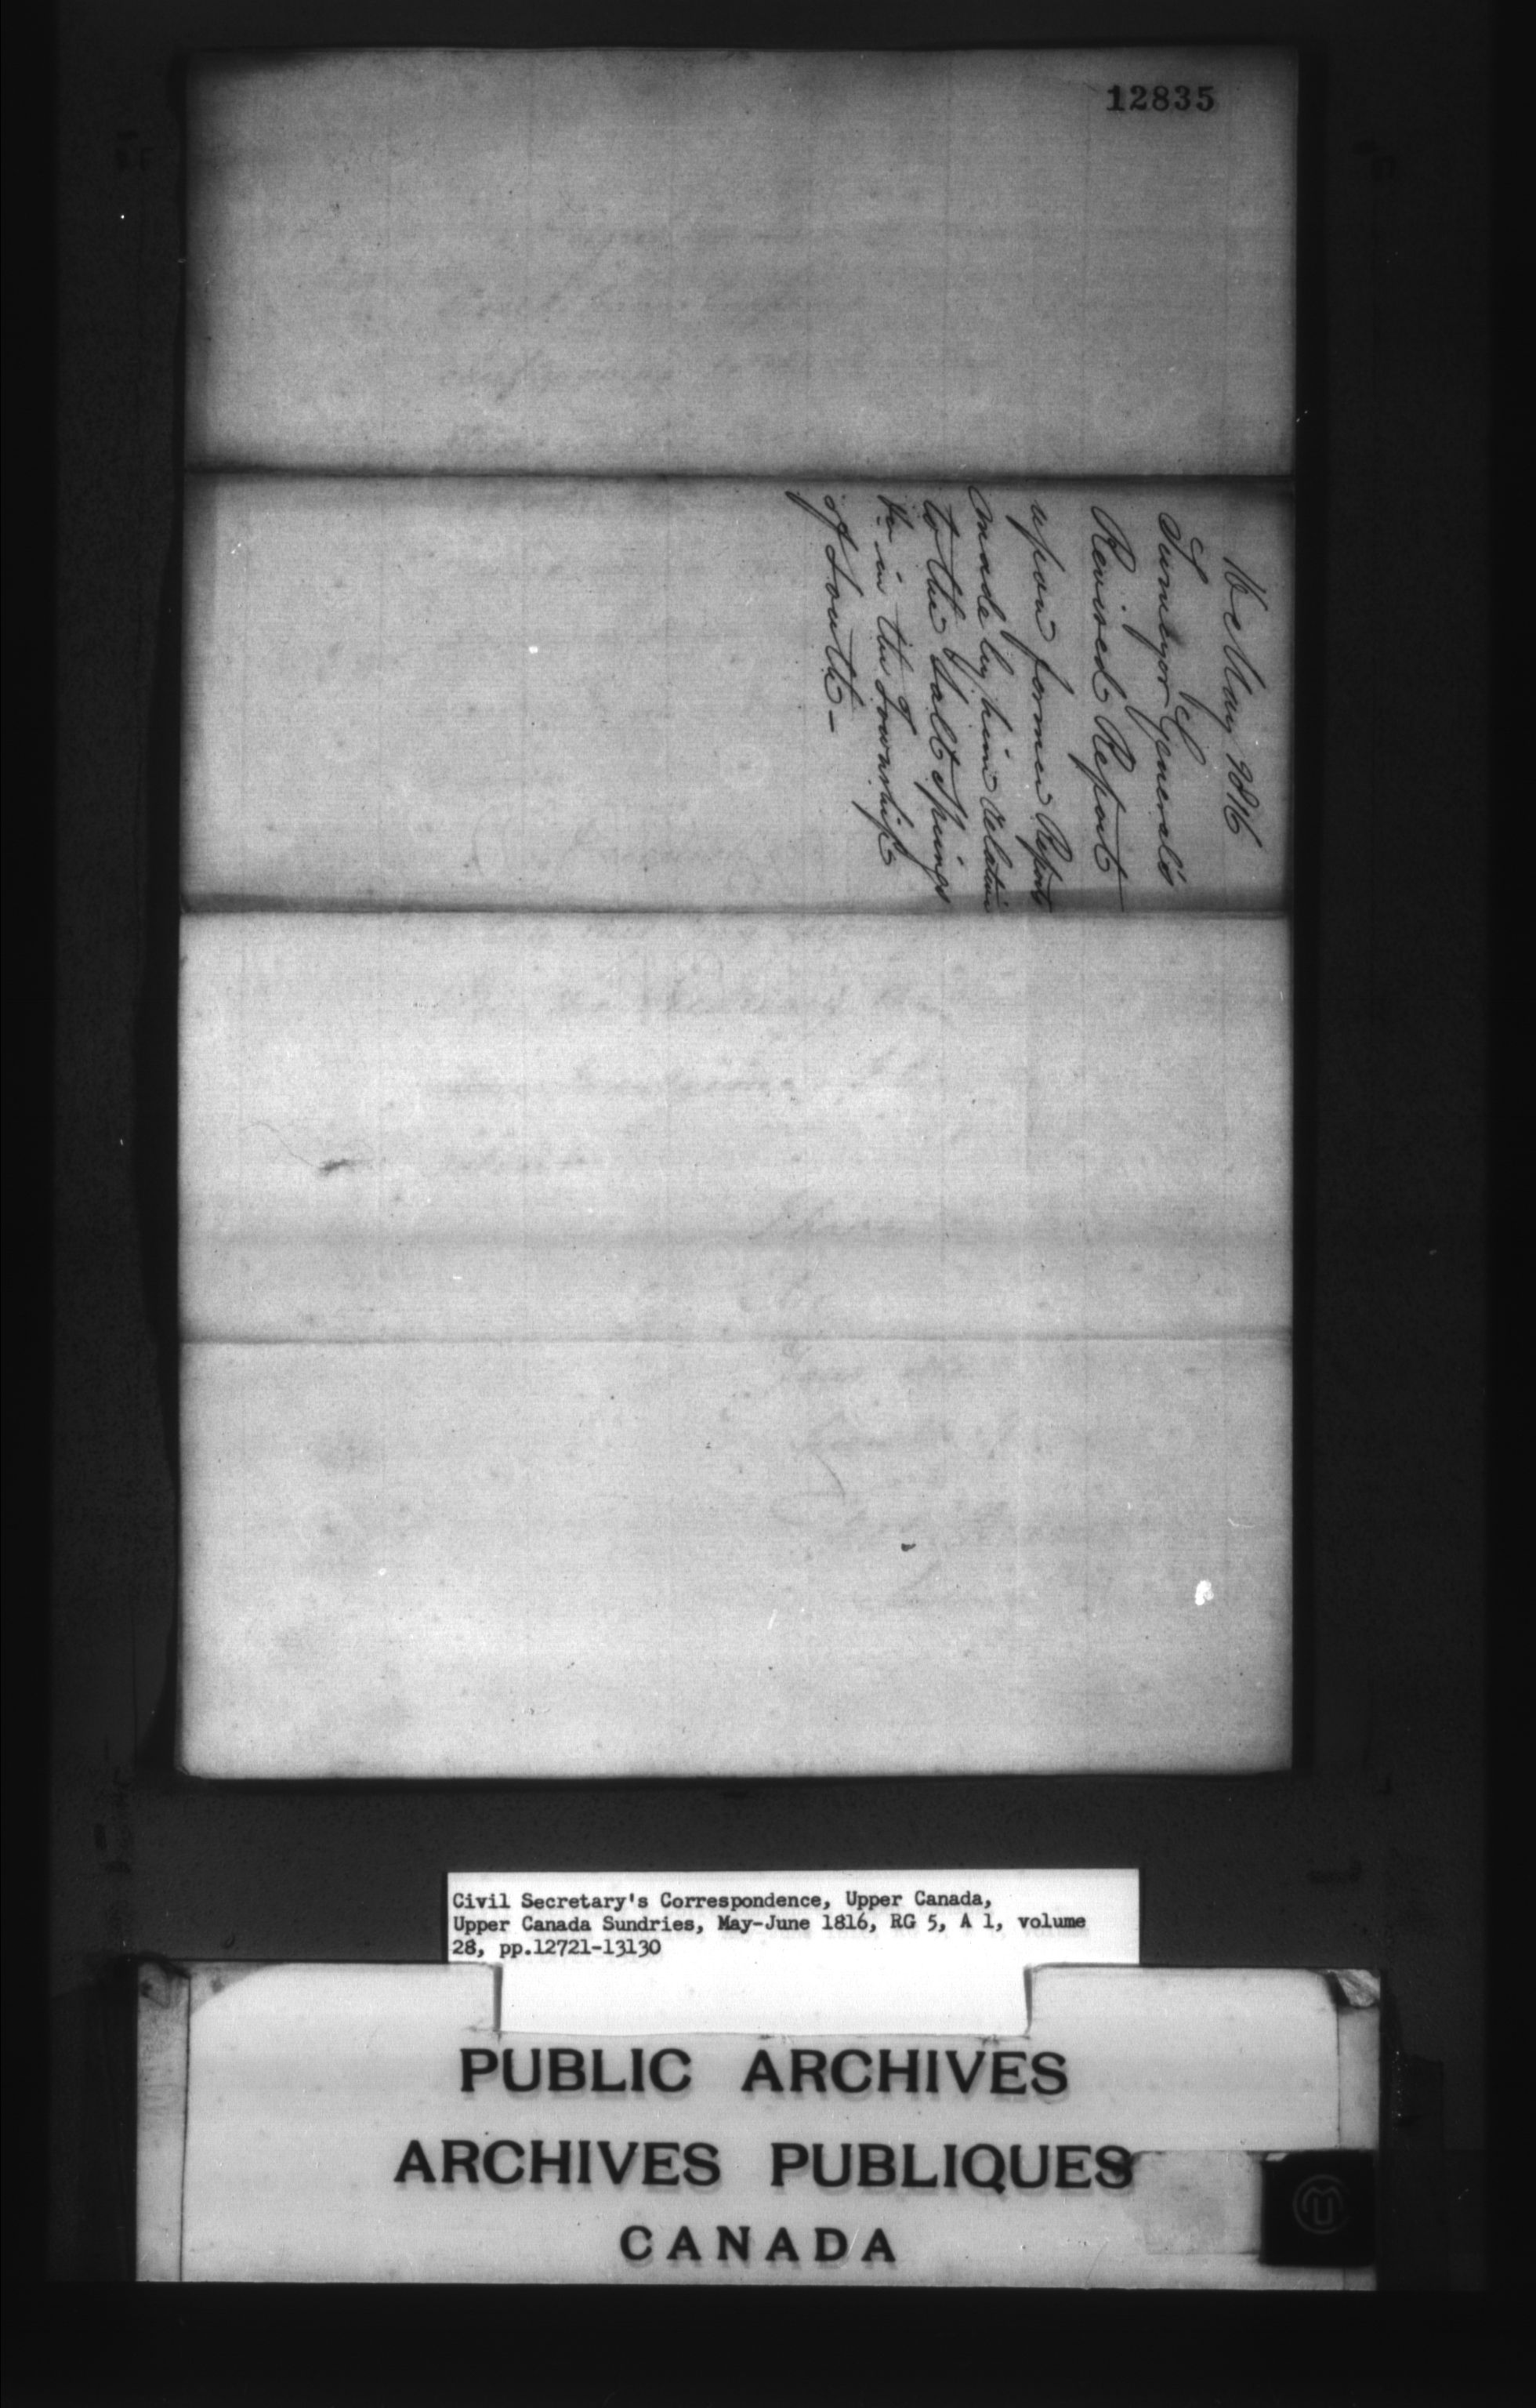 12835
16 May 1816
Surveyor General's
Revised Report
upon former Reports
made by him relative
to the Salt Springs
&c in the Township
of Louth -
Civil Secretary's Correspondence, Upper Canada,
Upper Canada Sundries, May-June 1816, RG 5, A 1, volume
28, pp.12721-13130
PUBLIC ARCHIVES
ARCHIVES PUBLIQUES
CANADA